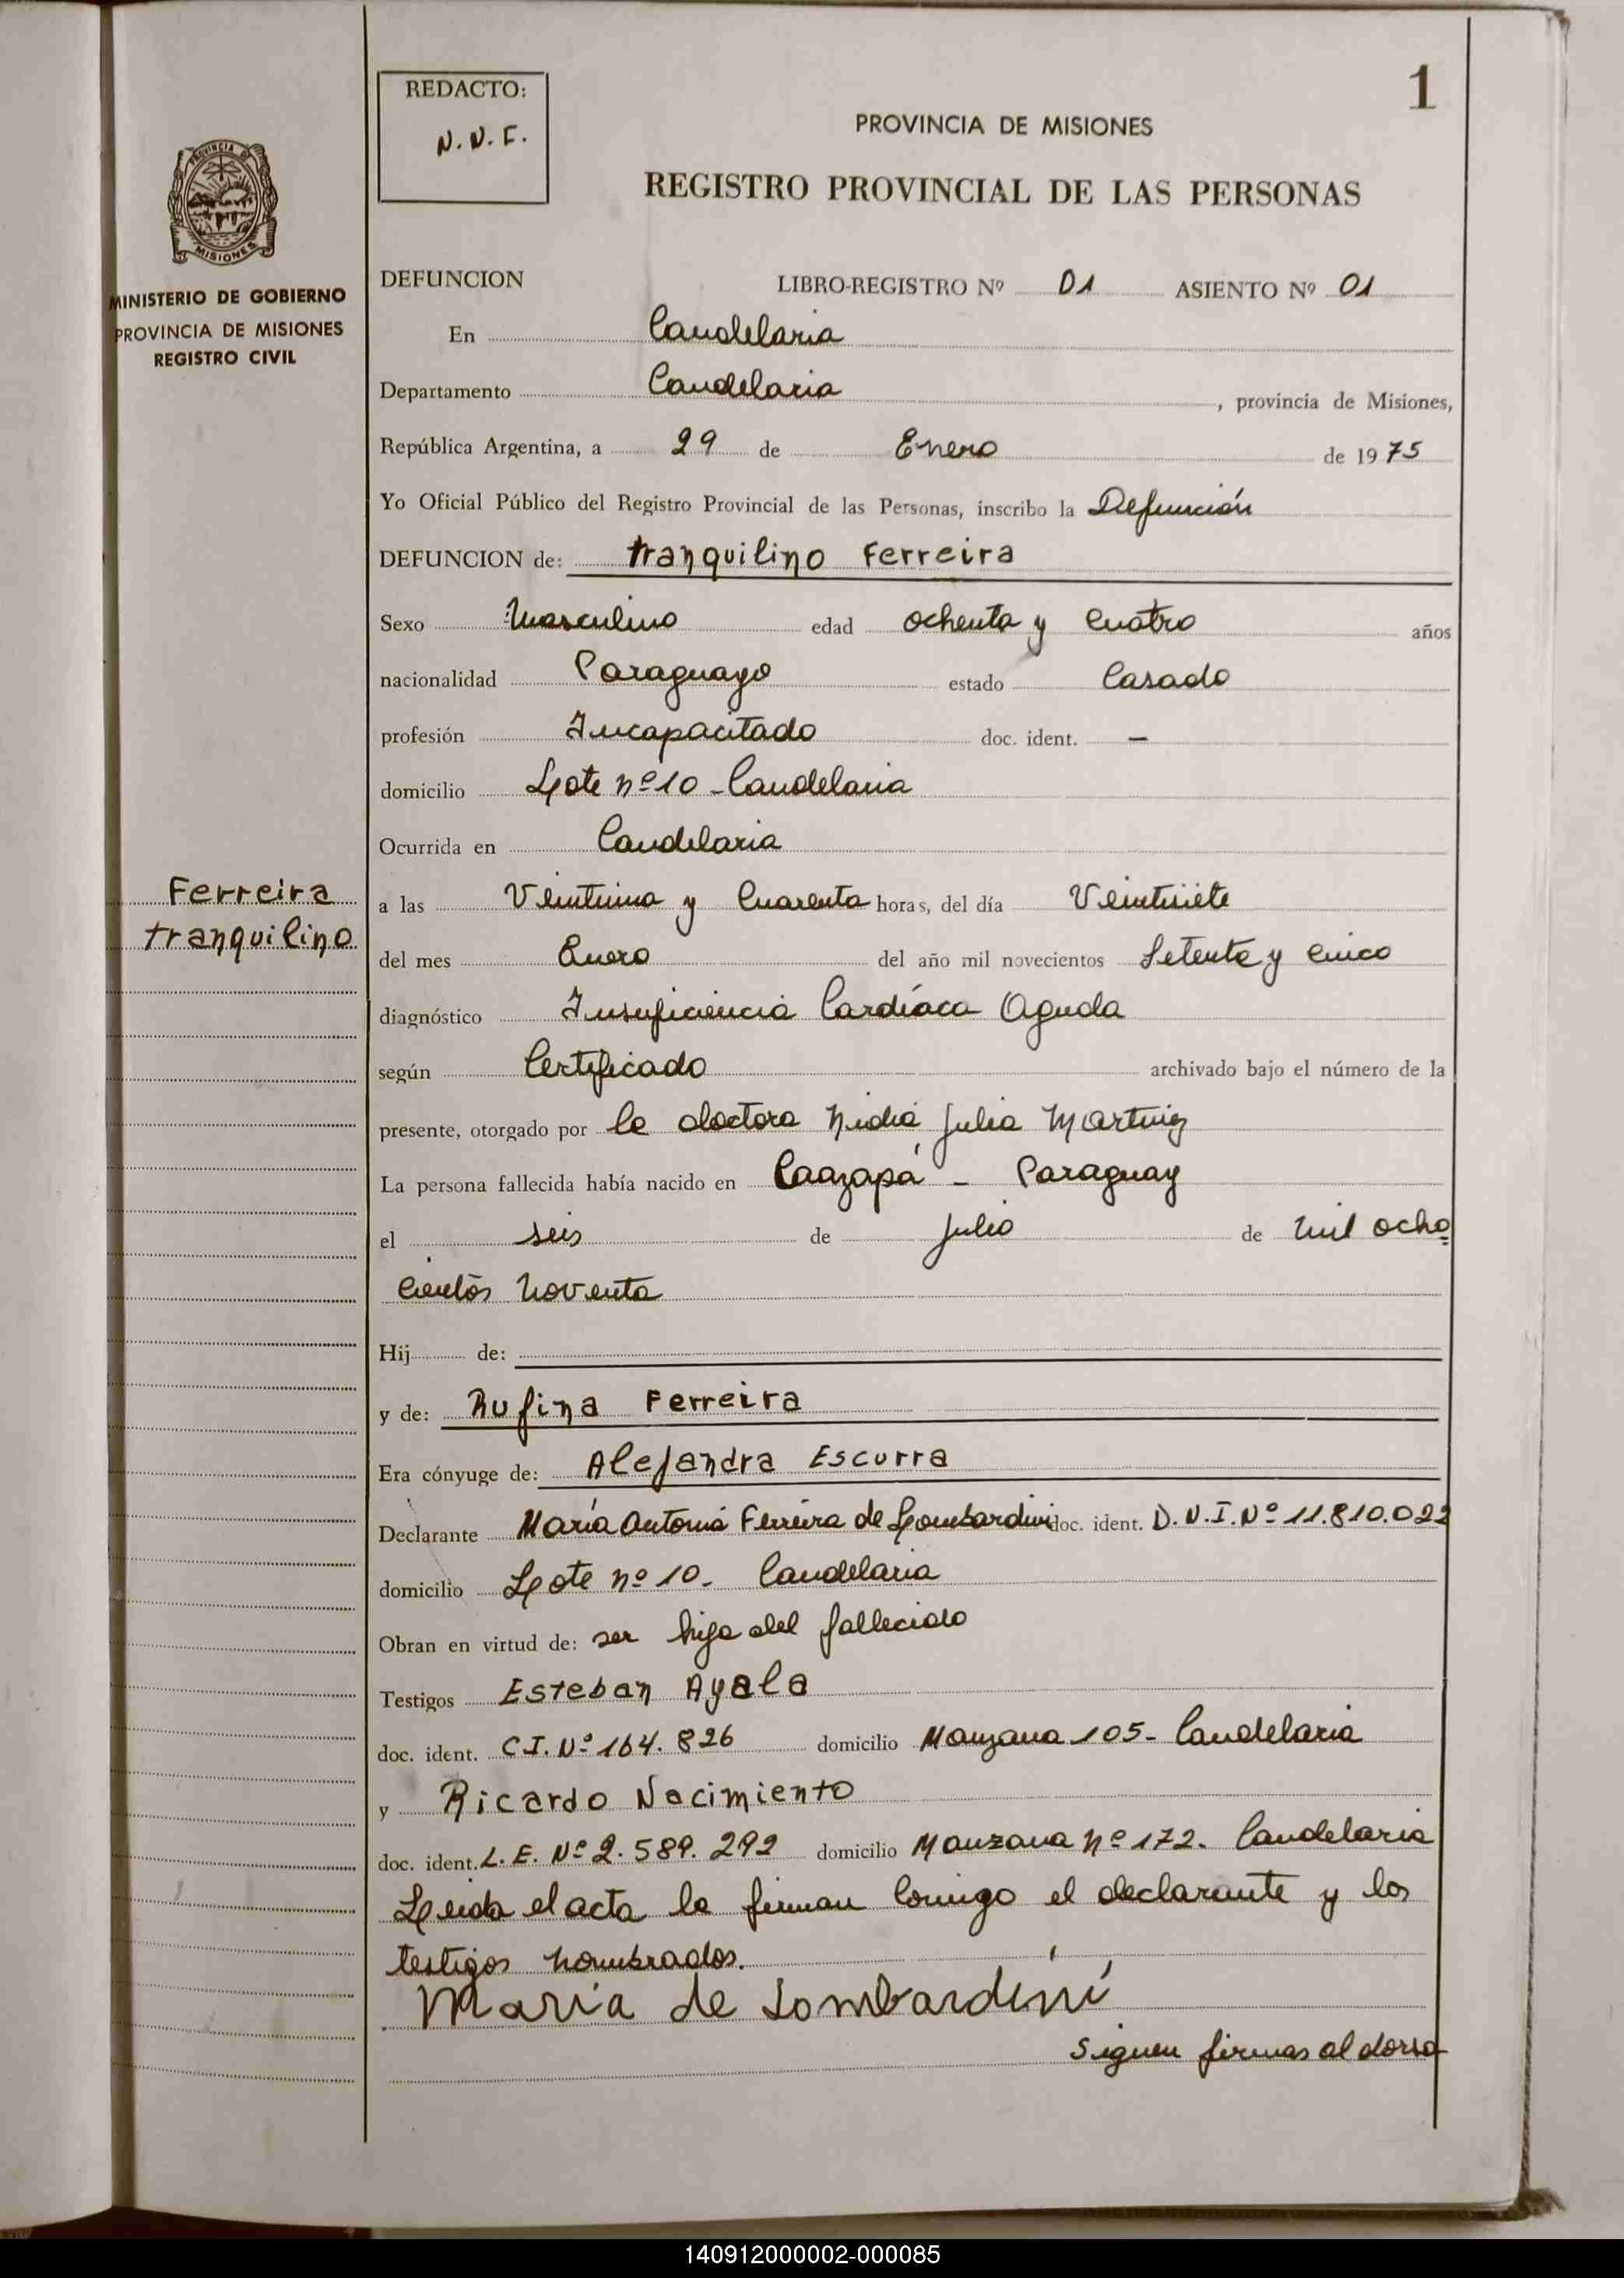 1
REDACTO:
N. N. F.
PROVINCIA DE MISIONES
REGISTRO PROVINCIAL DE LAS PERSONAS
PROVINCIA DE
MISIONES
MINISTERIO DE GOBIERNO
PROVINCIA DE MISIONES
REGISTRO CIVIL
DEFUNCION LIBRO-REGISTRO Nº 01 ASIENTO Nº 01
En Candelaria
Departamento Candelaria, provincia de Misiones,
República Argentina, a 29 de Enero de 1975
Yo Oficial Público del Registro Provincial de las Personas, inscribo la Defunción
DEFUNCION de: tranquilino Ferreira
Sexo Masculino edad ochenta y cuatro años
nacionalidad Paraguayo estado Casado
profesión Incapacitado doc. ident. —
domicilio Lote nº 10 - Candelaria
Ocurrida en Candelaria
Ferreira
tranquilino
a las Veintiuna y Cuarenta horas, del día Veintisiete
del mes Enero del año mil novecientos Setenta y cinco
diagnóstico Insuficiencia Cardíaca Aguda
según Certificado archivado bajo el número de la
presente, otorgado por la doctora Nidia Julia
La persona fallecida había nacido en Caazapá - Paraguay
el seis de julio de mil ocho=
cientos noventa
Hij de:
y de: Rufina Ferreira
Era cónyuge de: Alejandra Escurra
Declarante María Antonia Ferreira de Lombardini doc. ident. D.N.I. Nº 11.810.022
domicilio Lote nº 10 - Candelaria
Obran en virtud de: ser hija del fallecido
Testigos Esteban Ayala
doc. ident. C.I. Nº 164.826 domicilio Manzana 105 - Candelaria
y Ricardo Nacimiento
doc. ident. L. E. Nº 2.589.292 domicilio Manzana nº 172 - Candelaria
Leida el acta la firman conmigo el declarante y los
testigos nombrados.
Maria de Lombardini
Siguen firmas al dorso
140912000002-000085